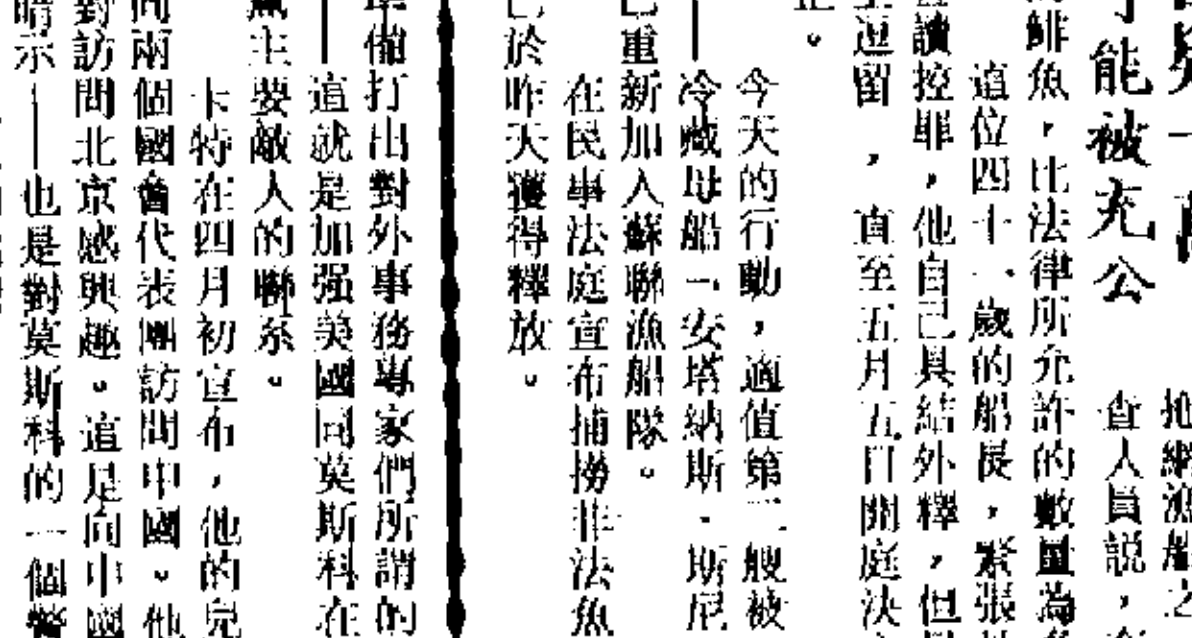 可能被充公
拖網漁船之
查人員説，
鯡魚，比法律所允許的數量為
這位四十一歲的船長，緊張
讀控罪，他自己具結外釋，但
逗留，直至五月五日開庭決
。
今天的行動，適值第二艘被
冷藏母船「安塔納斯·斯尼
已重新加入蘇聯漁船隊。
在民事法庭宣布捕撈非法魚
已於昨天獲得釋放。
準備打出對外事務專家們所謂的
——這就是加强美國同莫斯科在
主要敵人的聯系。
卡特在四月初宣布，他的兒
兩個國會代表團訪問中國。他
對訪問北京感興趣。這是向中國
暗示——也是對莫斯科的一個警